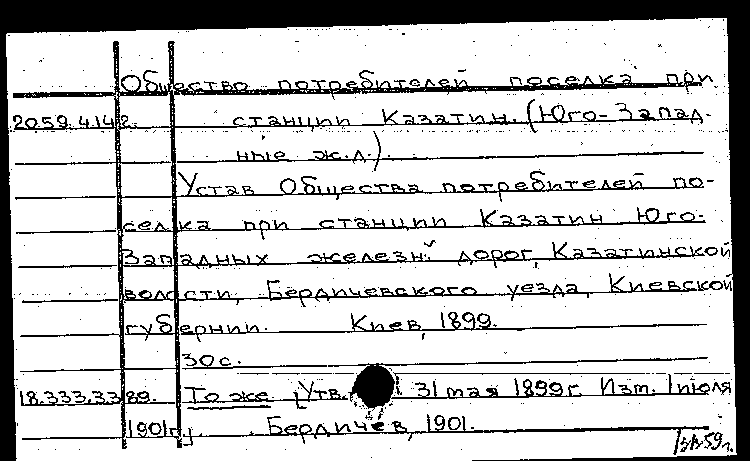 Общество потребителей поселка при
20.59.4.142. станции Казатин. (Юго-Запад-
ные ж.д.).
Устав Общества потребителей по-
селка при станции Казатин Юго-
Западных железн. дорог, Казатинской
волости, Бердичевского уезда, Киевской
губернии. Киев, 1899.
30 с.
18.333.3.389. То же [Утв. 31 мая 1899 г. Изм. 1 июля
1901 г.]. Бердичев, 1901.